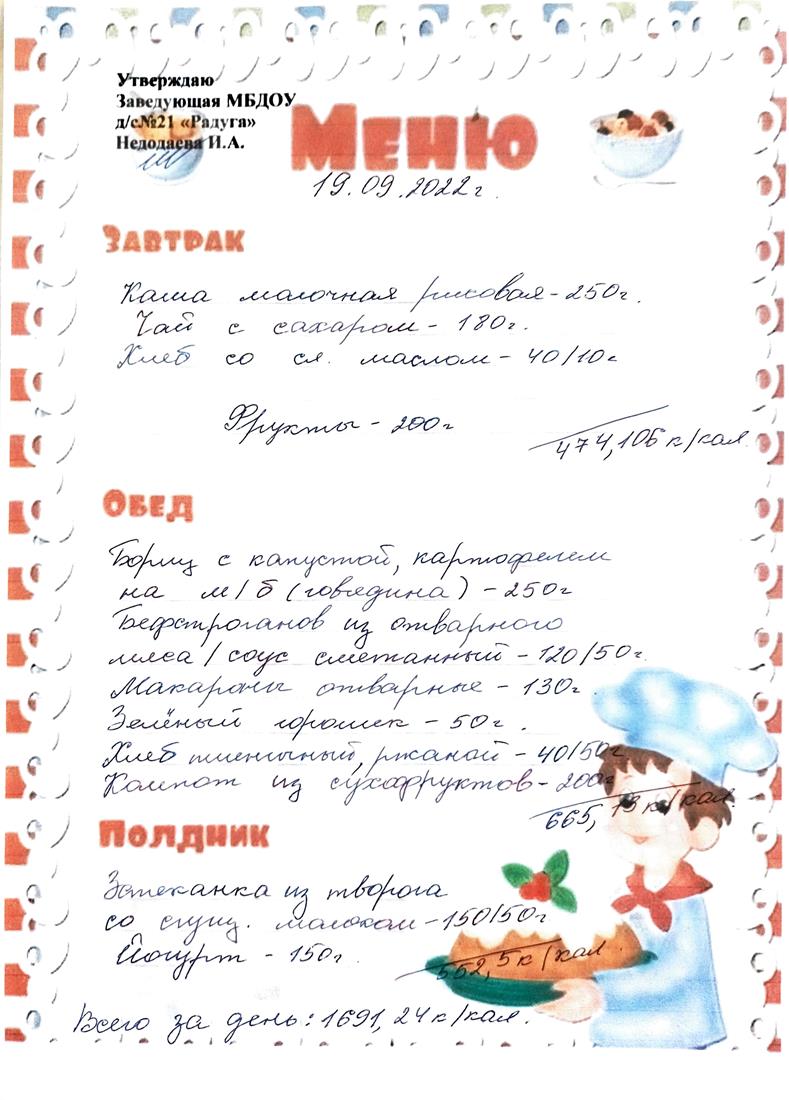 Утверждаю
Заведующая МБДОУ
д/с№21 «Радуга»
Недодаева И.А.
Меню
19.09.2022г.
Завтрак
Каша молочная рисовая - 250г.
Чай с сахаром - 180г.
Хлеб со сл. маслом - 40/10г
Фрукты - 200г
474,106 к/кал
Обед
Борщ с капустой, картофелем
на м/б (говядина) - 250г
Бефстроганов из отварного
мяса / соус сметанный - 120/50г.
Макароны отварные - 130г.
Зелёный горошек - 50г.
Хлеб пшеничный, ржаной - 40/50г
Компот из сухофруктов - 200г
665,13 к/кал.
Полдник
Запеканка из творога
со сгущ. молоком - 150/50г
Йогурт - 150г.
552,5 к/кал.
Всего за день: 1691,24 к/кал.